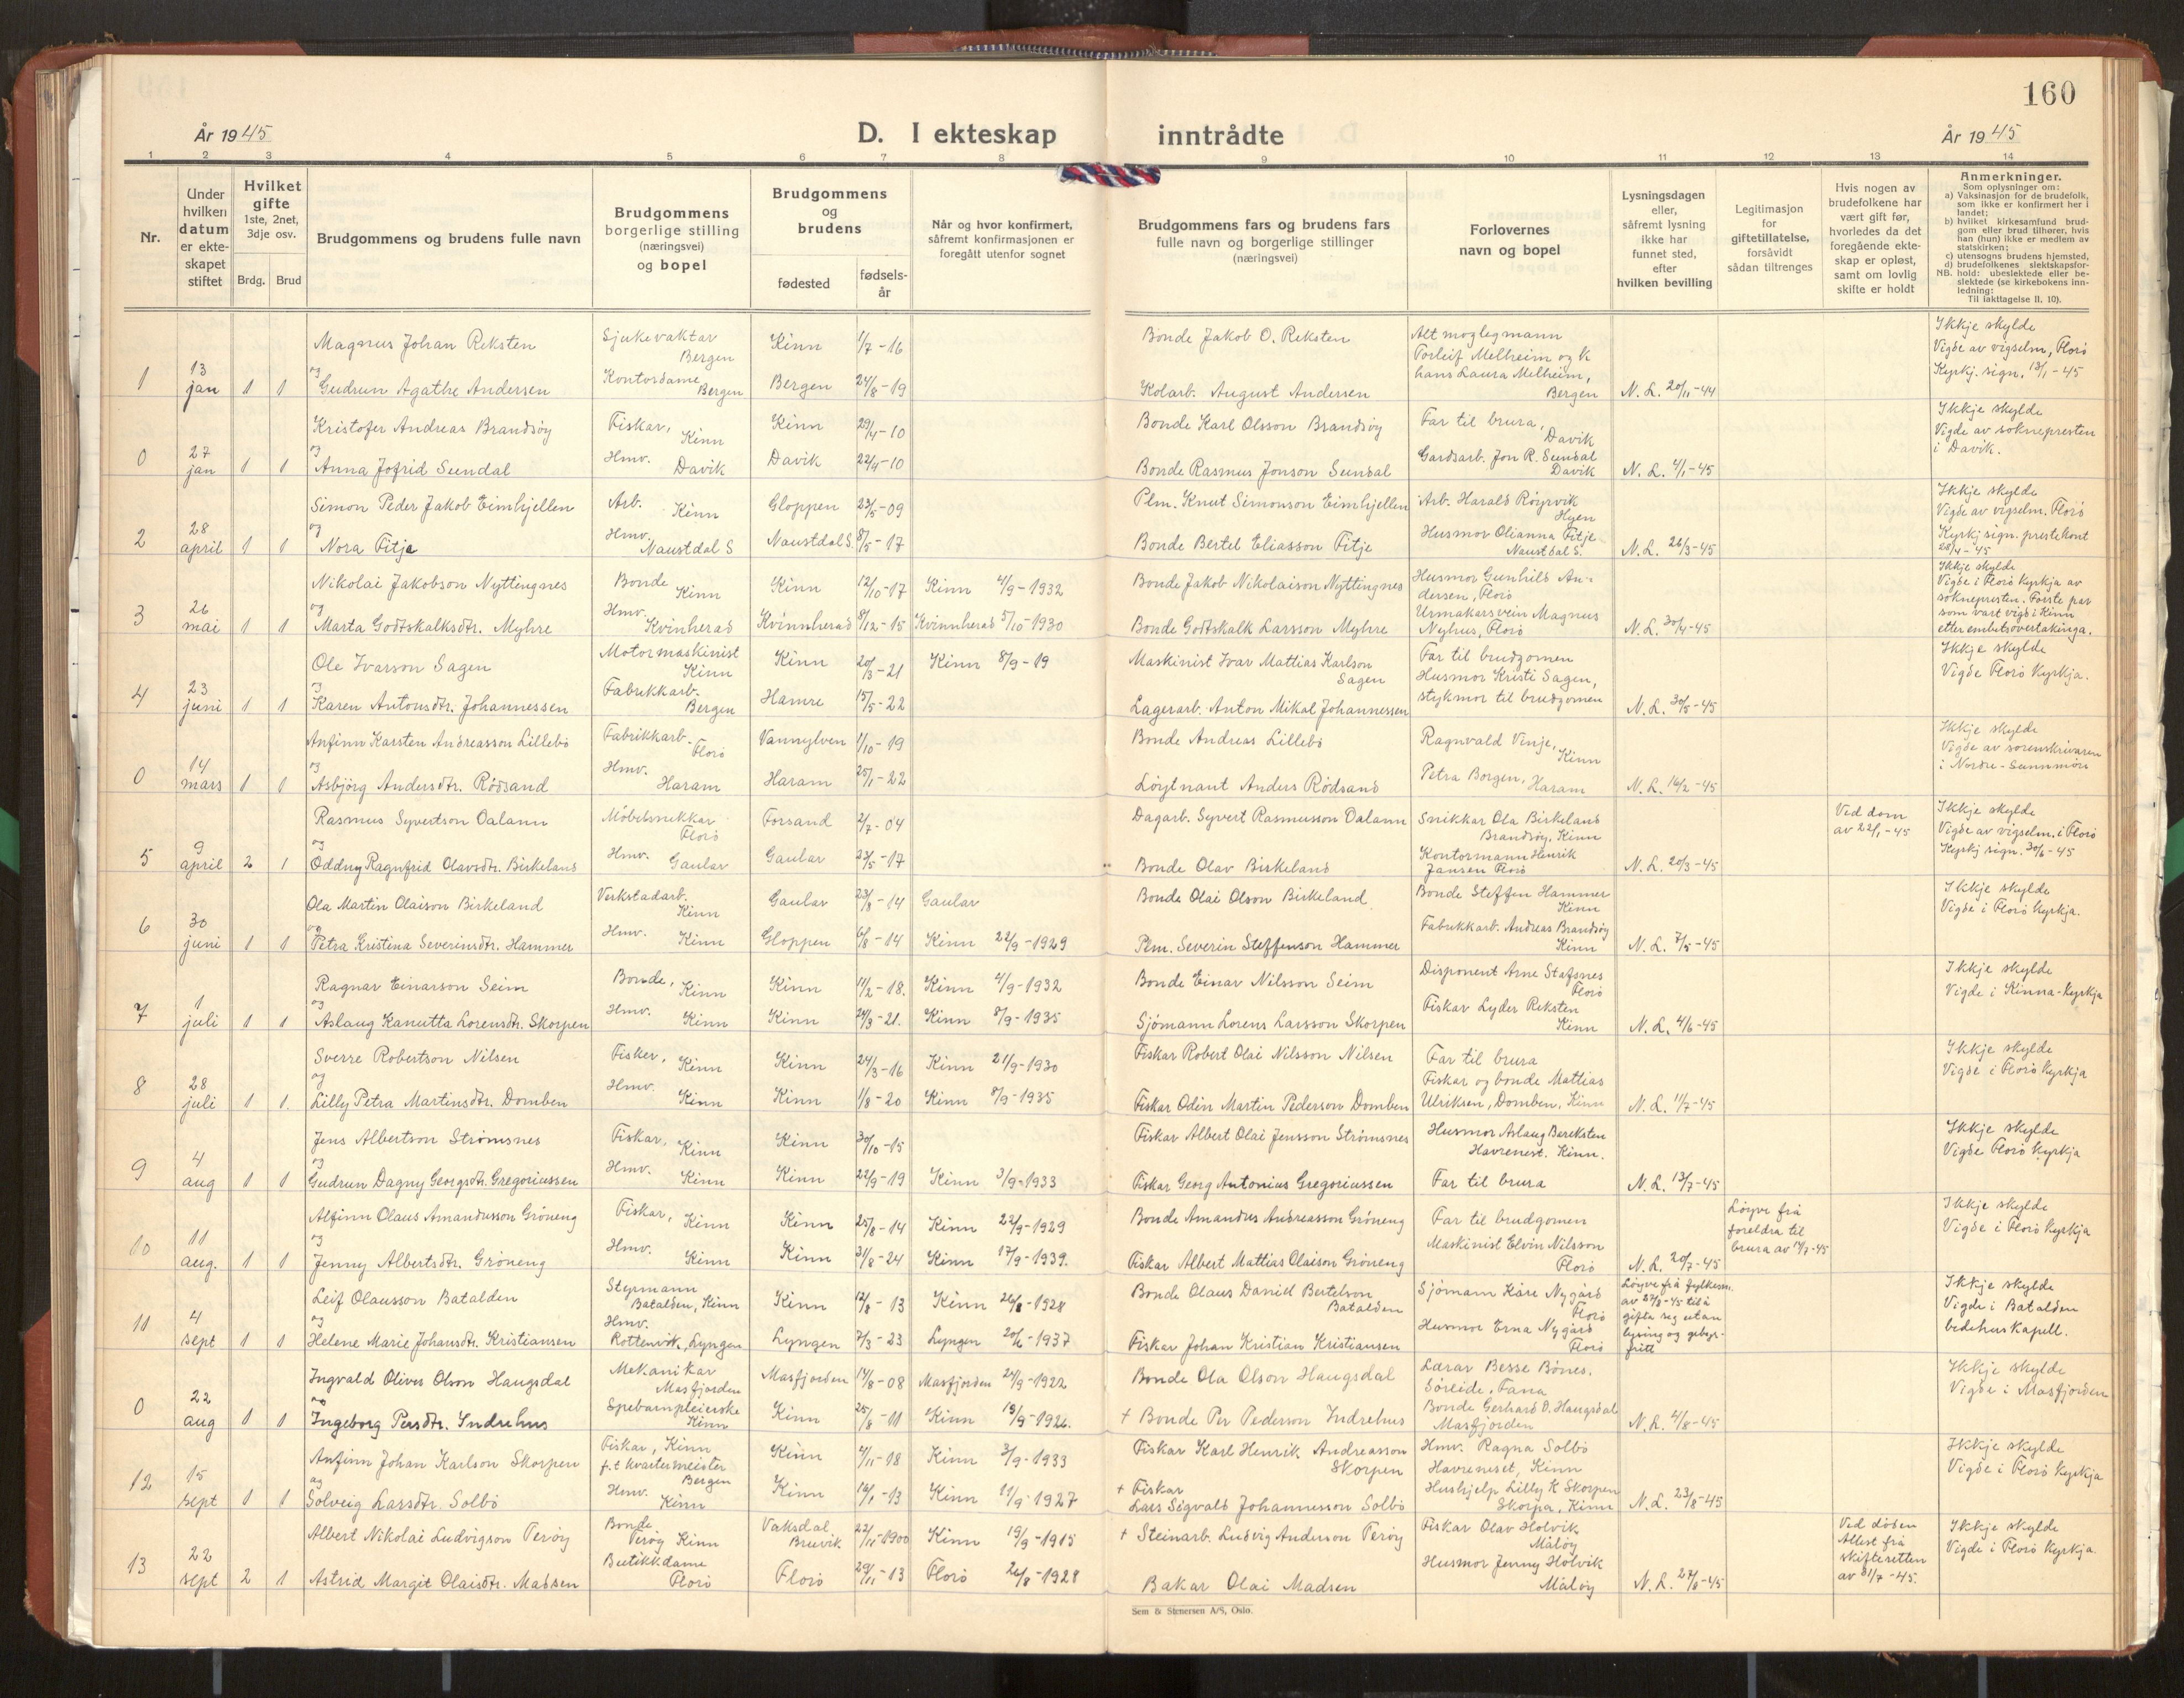 160
År 1945
D. I ekteskap inntrådte
År 1945
1 2 3 4 5 6 7 8 9 10 11 12 13 14
Nr.
Under hvilken datum er ekteskapet stiftet
Hvilket gifte 1ste, 2net, 3dje osv.
Brdg. Brud
Brudgommens og brudens fulle navn
Brudgommens borgerlige stilling (næringsvei) og bopel
Brudgommens og brudens
fødested
fødselsår
Når og hvor konfirmert, såfremt konfirmasjonen er foregått utenfor sognet
Brudgommens fars og brudens fars fulle navn og borgerlige stillinger (næringsvei)
Forlovernes navn og bopel
Lysningsdagen eller, såfremt lysning ikke har funnet sted, efter hvilken bevilling
Legitimasjon for giftetillatelse, forsåvidt sådan tiltrenges
Hvis nogen av brudefolkene har vært gift før, hvorledes da det foregående ekteskap er opløst, samt om lovlig skifte er holdt
Anmerkninger.
Som oplysninger om:
a) Vaksinasjon for de brudefolk, som ikke er konfirmert her i landet;
b) hvilket kirkesamfund brudgom eller brud tilhører, hvis han (hun) ikke er medlem av statskirken;
c) utensogns brudens hjemsted,
d) brudefolkenes slektskapsforhold: ubeslektede eller beslektede (se kirkebokens innledning:
NB.
Til iakttagelse II, 10).
1 13 jan 1 1
Magnus Johan Reksten Sjukevaktar Bergen Kinn 1/7-16 Bonde Jakob O. Reksten Altmoglegmann Torleif Melheim og k hans Laura Melheim, Bergen
og
Gudrun Agathe Andersen Kontordame Bergen Bergen 24/8-19 Kolarb. August Andersen N. L. 20/11-44
Ikkje skylde
Vigde av vigselm, Florö
Kyrkj. sign. 13/1-45
0 27 jan 1 1
Kristofer Andreas Brandsöy Fiskar, Kinn Kinn 29/4-10 Bonde Karl Olsson Brandsöy Far til brura, Davik
og
Anna Jofrid Sundal Hmv. Davik Davik 22/4-10 Bonde Rasmus Jonson Sundal Gardsarb. Jon R. Sundal Davik N. L. 4/1-45
Ikkje skylde
Vigde av soknepresten
i Davik.
2 28 april 1 1
Simon Peder Jakob Eimhjellen Arb. Kinn Gloppen 23/5-09 Plm. Knut Simonson Eimhjellen Arb. Harald Röyrvik Hyen
og
Nora Fitje Hmv. Naustdal S Naustdal S. 8/5-17 Bonde Bertel Eliasson Fitje Husmor Olianna Fitje Naustdal S. N. L. 26/3-45
Ikkje skylde
Vigde av vigselm. Florö
Kyrkj sign. prestekont
28/4-45
3 26 mai 1 1
Nikolai Jakobson Nyttingnes Bonde Kinn Kinn 12/10-17 Kinn 4/9-1932 Bonde Jakob Nikolaison Nyttingnes Husmor Gunhild Andersen, Florö
og
Marta Godtskalksdtr. Myhre Hmv. Kvinherad Kvinnherad 8/12-15 Kvinnherad 5/10-1930 Bonde Godtskalk Larsson Myhre Urmakarsvein Magnus Nyhus, Florö N. L. 30/4-45
Ikkje skylde
Vigde i Florö kyrkja av
soknepresten. Förste par
som vart vigd i Kinn
etter embetsovertakinga.
4 23 juni 1 1
Ole Ivarson Sagen Motormaskinist Kinn Kinn 20/3-21 Kinn 8/9-19 Maskinist Ivar Mattias Karlson Sagen Far til brudgomen
og
Karen Antonsdtr. Johannessen Fabrikkarb. Bergen Hamre 15/5-22 Lagerarb. Anton Mikal Johannessen Husmor Kristi Sagen, stykmor til brudgomen N. L. 30/5-45
Ikkje skylde
Vigde Florö kyrkja.
0 14 mars 1 1
Anfinn Karsten Andreasson Lillebö Fabrikkarb. Florö Vannylven 1/10-19 Bonde Andreas Lillebö Ragnvald Vinje, Kinn
og
Asbjörg Andersdtr. Rödsand Hmv. Haram Haram 25/1-22 Löytnant Anders Rödsand Petra Borgen, Haram N. L. 16/2-45
Ikkje skylde
Vigde av sorenskrivaren
i Nordre-Sunnmöre
5 9 april 2 1
Rasmus Syvertson Dalann Möbelsnikkar Florö Forsand 2/7-04 Dagarb. Syvert Rasmusson Dalann Snikkar Ola Birkeland Brandsöy, Kinn
og
Oddny Ragnfrid Olavsdtr. Birkeland Hmv. Gaular Gaular 23/5-17 Bonde Olav Birkeland Kontormann Henrik Jansen Florö N. L. 20/3-45
Ved dom av 22/1-45
Ikkje skylde
Vigde av vigselm. i Florö
Kyrkj sign. 30/6-45
6 30 juni 1 1
Ola Martin Olaison Birkeland Verkstadarb. Kinn Gaular 23/8-14 Gaular Bonde Olai Olson Birkeland Bonde Steffen Hammer Kinn
og
Petra Kristina Severinsdtr. Hammer Hmv. Kinn Gloppen 6/8-14 Kinn 22/9-1929 Plm. Severin Steffenson Hammer Fabrikkarb. Andreas Brandsöy Kinn N. L. 7/5-45
Ikkje skylde
Vigde i Florö kyrkja.
7 1 juli 1 1
Ragnar Einarson Seim Bonde, Kinn Kinn 11/2-18. Kinn 4/9-1932 Bonde Einar Nilsson Seim Disponent Arne Stafsnes Florö
og
Aslaug Kanutta Lorensdtr. Skorpen Hmv. Kinn Kinn 24/3-21. Kinn 8/9-1935 Sjömann Lorens Larsson Skorpen Fiskar Lyder Reksten Kinn N. L. 4/6-45
Ikkje skylde
Vigde i Kinna-kyrkja
8 28 juli 1 1.
Sverre Robertson Nilsen Fisker, Kinn Kinn 24/3-16 Kinn 21/9-1930 Fiskar Robert Olai Nilsson Nilsen Far til brura
og
Lilly Petra Martinsdtr. Domben Hmv. Kinn Kinn 1/8-20 Kinn 8/9-1935 Fiskar Odin Martin Pederson Domben Fiskar og bonde Mattias Ulriksen, Domben, Kinn N. L. 11/7-45
Ikkje skylde
Vigde i Florö kyrkja
9 4 aug 1 1
Jens Albertson Strömsnes Fiskar, Kinn Kinn 30/10-15 Fiskar Albert Olai Jensson Strömsnes Husmor Aslaug Bareksten Havrenest. Kinn.
og
Gudrun Dagny Georgsdtr. Gregoriussen Hmv. Kinn Kinn 22/9-19 Kinn 3/9-1933 Fiskar Georg Antonius Gregoriussen Far til brura N. L. 13/7-45
Ikkje skylde
Vigde Florö kyrkja
10 11 aug. 1 1
Alfinn Olaus Amandusson Gröneng Fiskar, Kinn Kinn 25/8-14 Kinn 22/9-1929 Bonde Amandus Andreasson Gröneng Far til brudgomen
og
Jenny Albertsdtr. Gröneng Hmv. Kinn Kinn 31/8-24 Kinn 17/9-1939. Fiskar Albert Mattias Olaison Gröneng Maskinist Elvin Nilsson Florö N. L. 20/7-45
Löyve frå foreldra til brura av 17/7-45
Ikkje skylde
Vigde i Florö kyrkja
11 4 sept 1 1
Leif Olausson Batalden Styrmann Batalden, Kinn Kinn 12/8-13 Kinn 26/8-1928 Bonde Olaus Daniel Bertelson Batalden Sjömann Kåre Nygård Florö
og
Helene Marie Johansdtr. Kristiansen Hmv. Rottenvik, Lyngen Lyngen 7/3-23 Lyngen 20/6-1937 Fiskar Johan Kristian Kristiansen Husmor Erna Nygård Florö
Löyve frå fylkesm. av 27/8-45 til å gifta seg utan lysing og gebyrfritt
Ikkje skylde
Vigde i Batalden
bedehuskapell.
0 22 aug 1 1
Ingvald Oliver Olson Haugsdal Mekanikar Masfjorden Masfjorden 14/8-08 Masfjorden 24/9-1922 Bonde Ola Olson Haugsdal Lærar Besse Bönes, Söreide, Fana
og
Ingeborg Persdtr. Indrehus Spebarnpleierske Kinn Kinn 25/8-11 Kinn 19/9-1926. + Bonde Per Pederson Indrehus Bonde Gerhard O. Haugsdal Masfjorden N. L. 4/8-45
Ikkje skylde
Vigde i Masfjorden
12 15 sept 1 1
Anfinn Johan Karlson Skorpen Fiskar, Kinn f.t kvartermeister Bergen Kinn 4/11-18 Kinn 3/9-1933 Fiskar Karl Henrik Andreasson Skorpen Hmv. Ragna Solbö Havreneset, Kinn
og
Solveig Larsdtr. Solbö Hmv. Kinn Kinn 16/1-13 Kinn 11/9-1927 + Fiskar Lars Sigvald Johannesson Solbö Hushjelp Lilly K Skorpen Skorpa, Kinn N. L. 23/8-45
Ikkje skylde
Vigde i Florö kyrkja
13 22 sept 2 1
Albert Nikolai Ludvigson Teröy Bonde Teröy Kinn Vaksdal Bruvik 22/11-1900 Kinn 19/9-1915 + Steinarb. Ludvig Anderson Teröy Fiskar Olav Holvik Målöy
Astrid Margit Olaisdtr. Madsen Butikkdame Florö Florö 29/11-13 Florö 26/8-1928 Bakar Olai Madsen Husmor Jenny Holvik Målöy N. L. 27/8-45
Ved döden Attest frå skifteretten av 31/7-45.
Ikkje skylde
Vigde i Florö kyrkja.
Sem & Stenersen A/S, Oslo.